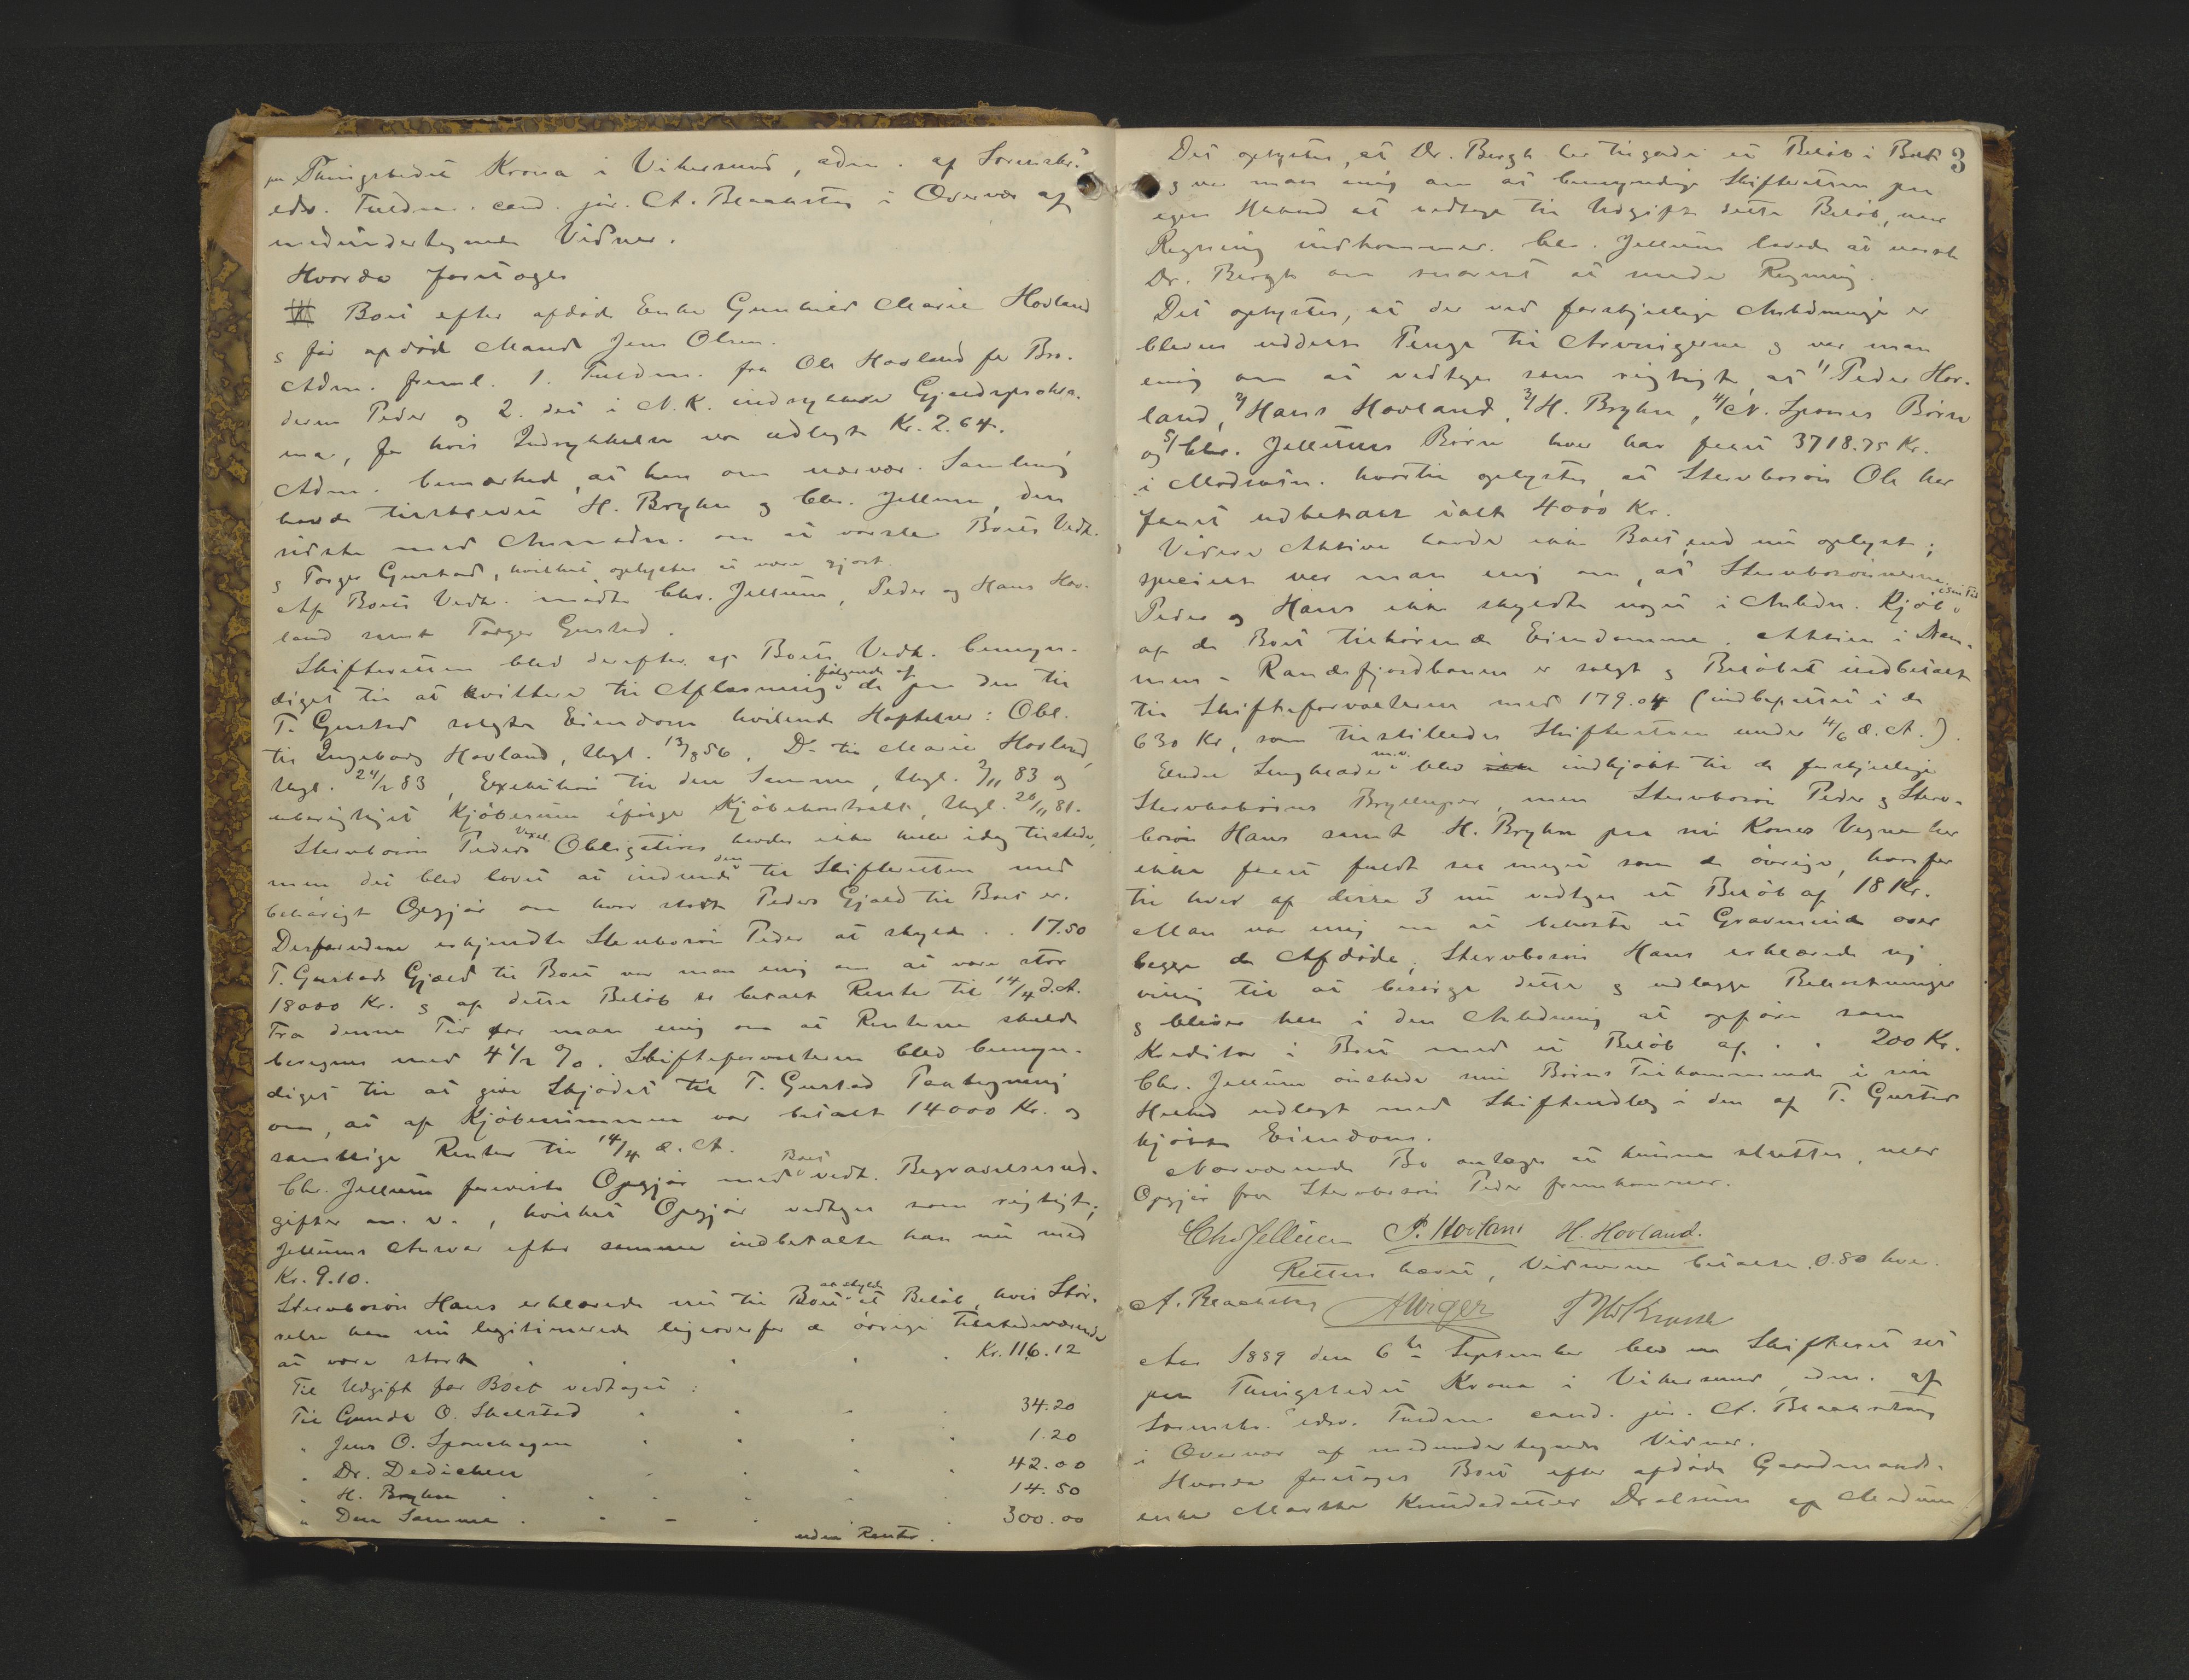 paa Thingstedet Krona i Vikersund, adm. af Sorenskr.s
edsv. Fuldm. cand. jur. A. Blaakstag i Overvær af
medundertegnede Vidner.
Hvorda foretoges
Boet efter afdøde Enke Gunhild Marie Hovland
og før afdøde Mand Jens Olsen.
Adm. freml. 1. Fuldm. fra Ole Hovland for Bro-
deren Peder og 2. det i N. K. indrykkede Gjældsprokla-
ma, for hvis Indrykkelse var udlagt Kr. 2.64.
Adm. bemærkede, at han om nærvær. Samling
havde tilskrevet H. Bryhn og Chr. Jellum, den
sidste med Anmodn. om at varsle Boets Vedk.
og Torger Gustad, hvilket oplystes at være gjort.
Af Boets Vedk. mødte Chr. Jellum, Peder og Hans Hov-
land samt Torger Gustad.
Skifteretten blev derefter af Boets Vedk. bemyn-
diget til at kvittere til Aflæsning følgende af de paa den til
T. Gustad solgte Eiendom hvilende Heftelser: Obl.
til Ingeborg Hovland, thgl. 13/8 56, Do til Marie Hovland,
thgl. 24/2 83, Exekution til den Samme, thgl. 2/11 83 og
uberigtiget Kjøbesum ifølge Kjøbekontrakt, thgl. 20/11 81.
Stervbosøn Peders Vexel Obligation havdes ikke heller idag tilstede,
men det blev lovet at indsende den til Skifteretten med
behørigt Opgjør om hvor stort Peders Gjæld til Boet er.
Desforuden erkjendte Stervbosøn Peder at skylde . . 17.50
T. Gustads Gjæld til Boet var man enig om at være stor
18000 Kr. og af dette Beløb er betalt Renter til 14/4 d. A.
Fra denne Tid var man enig om at Renterne skulde
beregnes med 4 1/2 %. Skifteforvalteren blev bemyn-
diget til at give Skjødet til T. Gustad Paategning
om, at af Kjøbesummen var betalt 14000 Kr. og
samtlige Renter til 14/4 d. A.
Chr. Jellum foreviste Opgjør med Boet vedk. Begravelsesud-
gifter m. v., hvilket Opgjør vedtages som rigtigt;
Jellums Ansvar efter samme indbetalte han nu med
Kr. 9.10.
Stervbosøn Hans erklærede nu til Boet at skylde et Beløb, hvis Stør-
relse han nu legitimerede ligeoverfor de øvrige Tilstedeværende
at være stort . . . . Kr. 116.12
Til Udgift for Boet vedtoges:
Til Gunda O. Skalstad . . . 34.20
" Jens O. Sponehagen . . . 1.20
" Dr. Dedichen . . . 42.00
" H. Bryhn . . . 14.50
" Den Samme . . . 300.00
uden Renter.
3
Det oplystes, at Dr. Bergh har tilgode et Beløb i Boet
og var man enig om at bemyndige Skifteretten paa
egen Haand at vedtage til Udgift dette Beløb, naar
Regning indkommer. Chr. Jellum lovede at varsle
Dr. Bergh om snarest at sende Regning.
Det oplystes, at der ved forskjellige Anledninger er
bleven uddelt Penge til Arvingerne og var man
enig om at vedtage som rigtigt, at 1/ Peder Hov-
land, 2/ Hans Hovland, 3/ H. Bryhn, 4/ N. Spones Børn
og 5/ Chr. Jellums Børn hver har faaet 3718.75 Kr.
i Modsætn. hvortil oplystes, at Stervbosøn Ole har
faaet udbetalt ialt 4000 Kr.
Videre Aktiva havde ikke Boet, end nu oplyst;
specielt var man enig om, at Stervbosønnerne
Peder og Hans ikke skyldte noget i Anledn. Kjøb i sin Tid
af de Boet tilhørende Eiendomme. Aktien i Dram-
men - Randsfjordbanen er solgt og Beløbet indbetalt
til Skifteforvalteren med 179.04 (indbefattet i de
630 Kr, som tilstilledes Skifteretten under 4/6 d. A.).
Endel Sengklæder m.v. blev indkjøbt til de forskjellige
Stervbobørns Bryllupper, men Stervbosøn Peder og Sterv-
bosøn Hans samt H. Bryhn paa sin Kones Vegne har
ikke faaet fuldt saa meget som de øvrige, hvorfor
til hver af disse 3 nu vedtages et Beløb af 18 Kr.
Man var enig om at bekoste et Gravminde over
begge de Afdøde, Stervbosøn Hans erklærede sig
villig til at besørge dette og udlægge Bekostninger
og bliver han i den Anledning at opføre som
Kreditor i Boet med et Beløb af . . 200 Kr.
Chr. Jellum ønskede sine Børns Tilkommende i sin
Helhed udlagt med Skifteudlæg i den af T. Gustad
kjøbte Eiendom.
Nærværende Bo antages at kunne sluttes, naar
Opgjør fra Stervbosøn Peder fremkommer.
Chr Jellum P. Hovland H. Hovland.
Retten hævet, Vidnerne betalte 0.80 hver.
A. Blaakstag
Aar 1889 den 6te September blev en Skifteret sat
paa Thingstedet Krona i Vikersund, adm. af
Sorenskr.s edsv. Fuldm. cand. jur. A. Blaakstag
i Overvær af medundertegnede Vidner.
Hvorda foretoges Boet efter afdøde Gaardmands-
enke Marthe Knudsdatter Drolsum af Modum